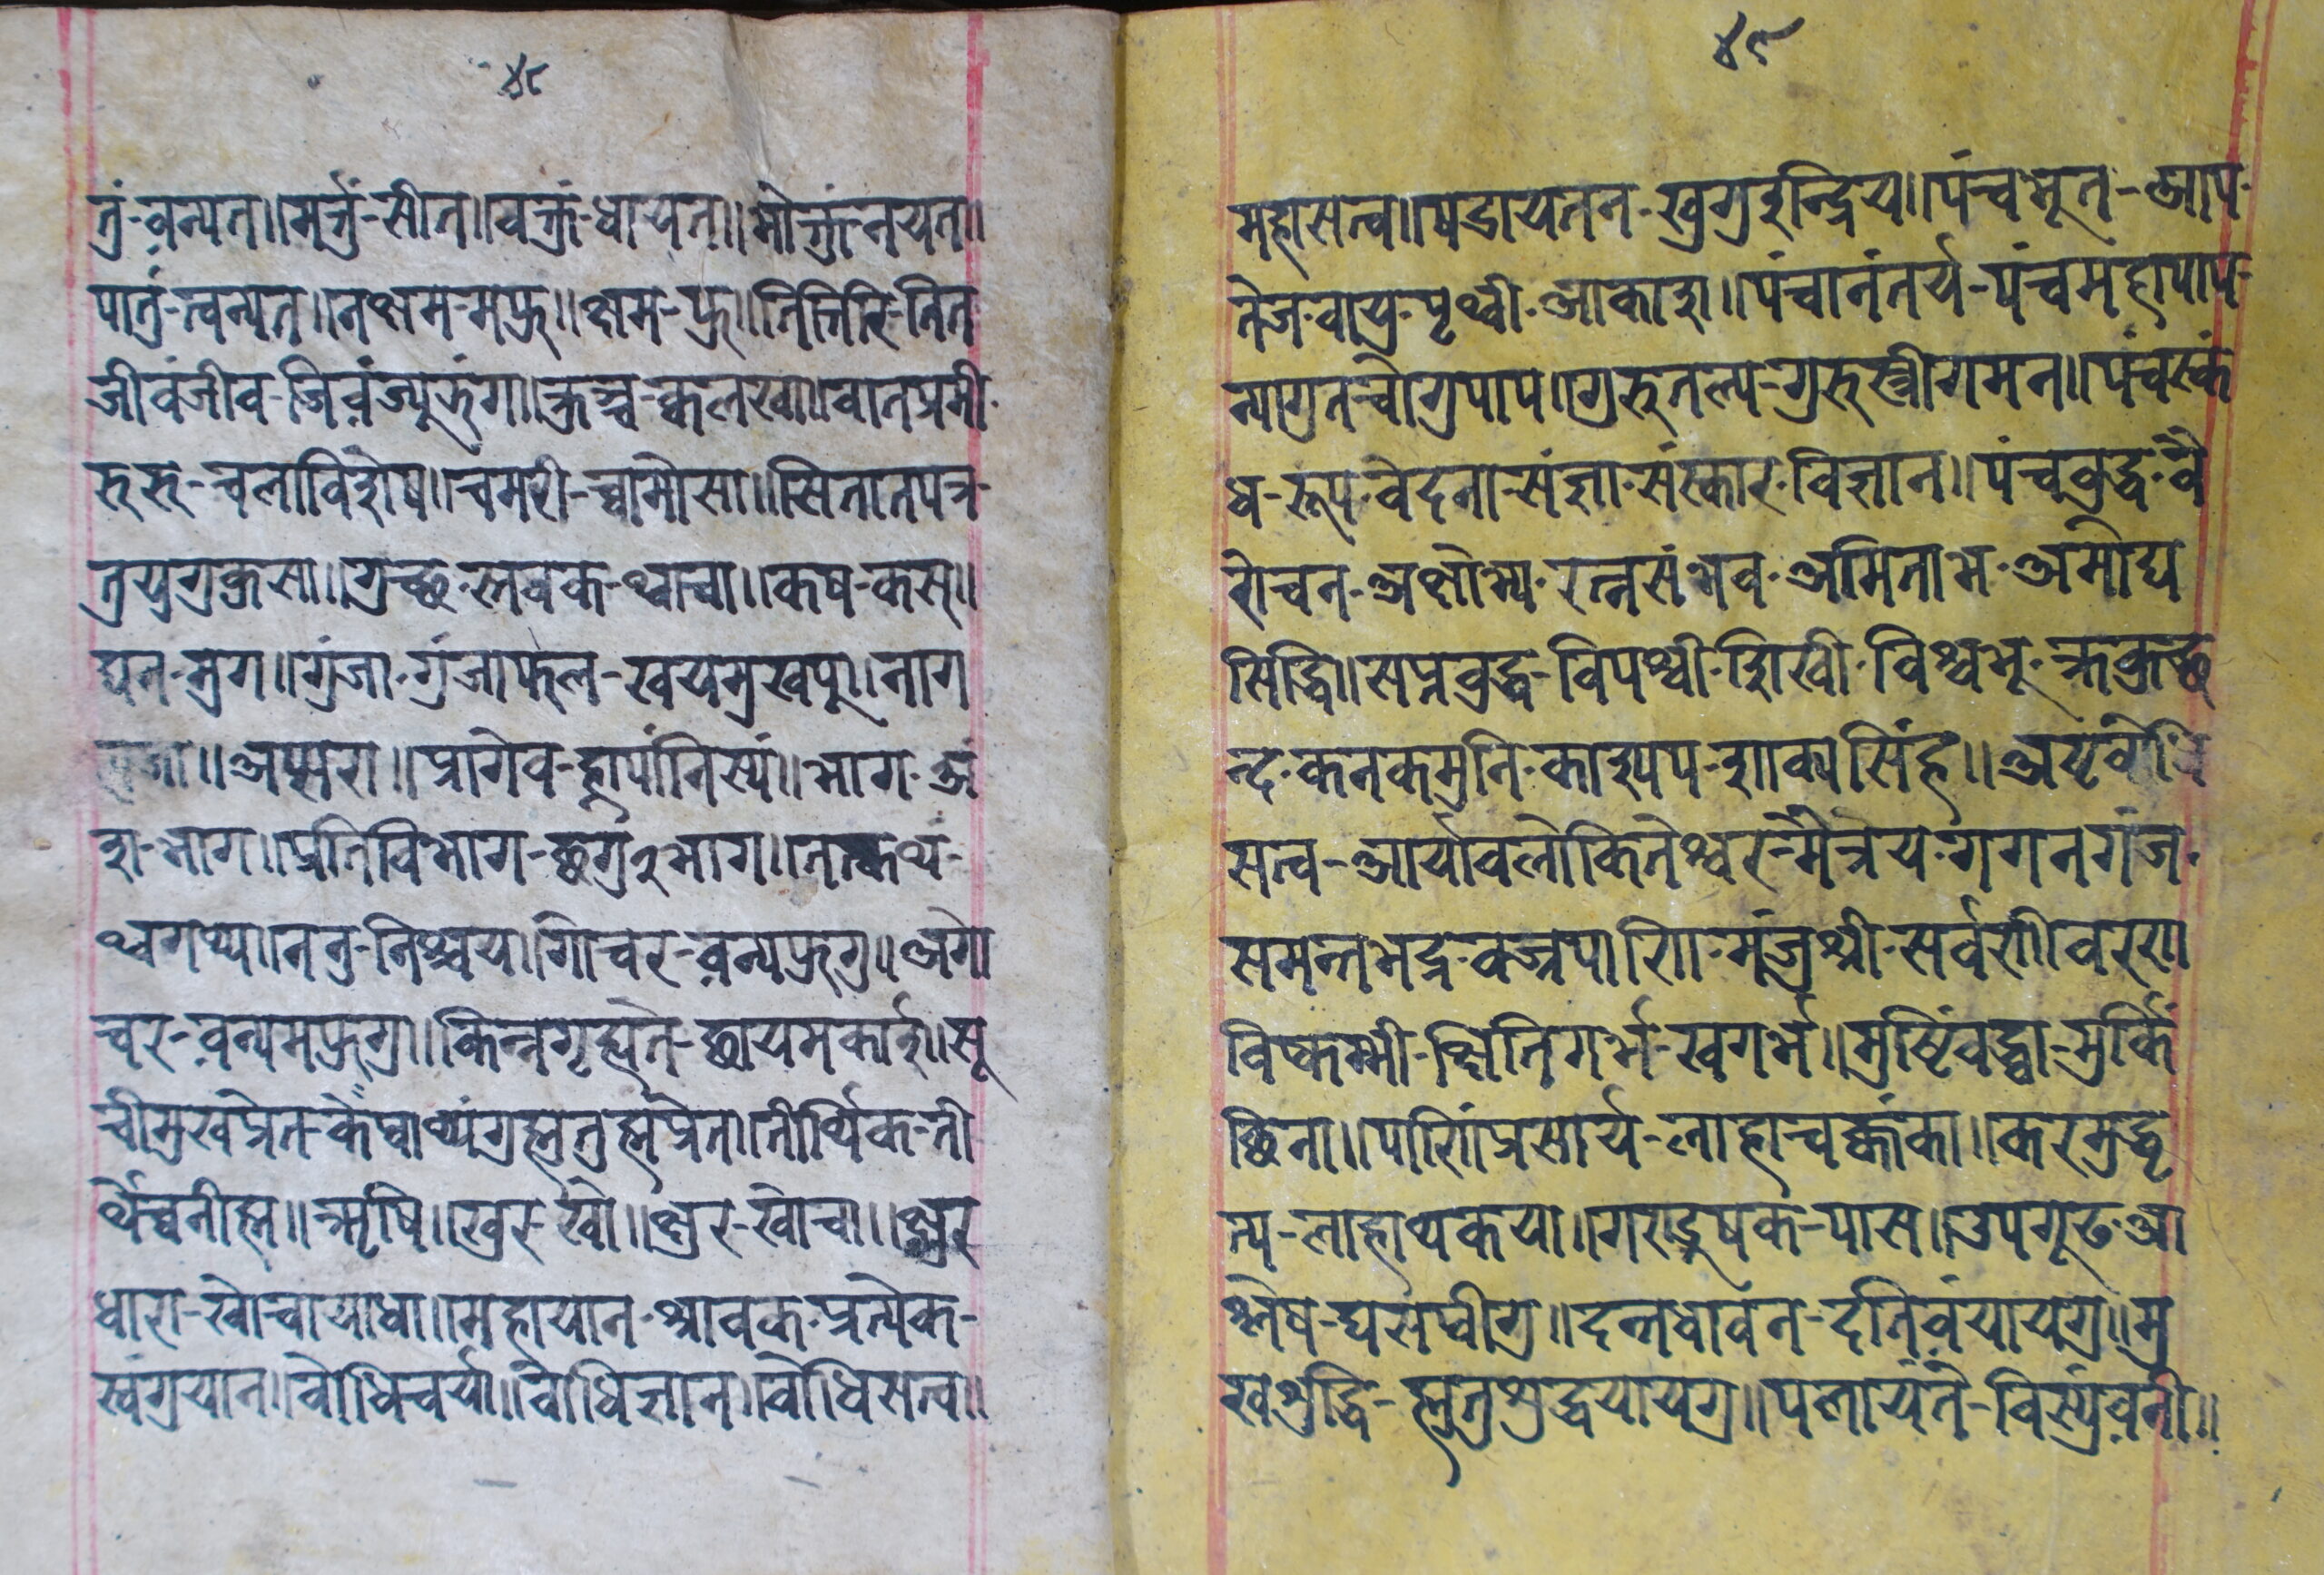 ४८
तुं-वन्यत॥मर्त्तुं-सीत॥वक्तुं-धायत॥भोक्तुं-नयत॥
पातुं-त्वन्यत॥नक्षम-मफु॥क्षम-फु॥तित्तिरि-तित
जीवंजीव-जिवंज्युझंग॥क्रञ्च-क्वलखा॥वातप्रमी-
रुरु-चलाविशेष॥चमरी-च्वामोसा॥सितातपत्र-
तुयुगुकुसा॥गुच्छ-स्तवक-थ्वाचा॥कष-कस॥
द्यन-मुग॥गुंजा-गुंजाफल-खयमुखपु॥नाग
अप्सरा॥प्रागेव-ह्नापांनिस्यं॥भाग-अं
श-भाग॥प्रतिविभाग-छगुं२भाग॥तत्कथं-
थ्वगथ्य॥ननु-निश्चय॥गोचर-वन्यफुगु॥अगो
चर-वन्यमफुगु॥किन्नगृह्यते-छायमकाई॥सू
चीमुखप्रेत-कंप्वाथ्यंगुह्मुतुह्मप्रेत॥तीर्थिक-ती
र्थेच्वनीह्म॥ऋषि॥खुर-खो॥क्षुर-खोचा॥क्षुर
धारा-खोचायाधा॥महायान-श्रावक-प्रत्येक-
खंगुयान॥वोधिचर्या॥वोधिज्ञान॥वोधिसत्व॥
४९
महासत्व॥षडायतन-खुगुइन्द्रिय॥पंचभूत-आप-
तेज-वायु-पृथ्वी-आकाश॥पंचानंतर्य-पंचमहापाप-
न्यागुतच्चोगुपाप॥गुरुतल्प-गुरुस्त्रीगमन॥पंचस्कं
ध-रूप-वेदना-संज्ञा-संस्कार-विज्ञान॥पंचवुद्ध-वै
रोचन-अक्षोभ्य-रत्नसंभव-अमिताभ-अमोद्य
सिद्धि॥सप्तवुद्ध-विपश्वी-शिखी-विश्वभू-क्रकुच्छ
न्द-कनकमुनि-काश्यप-शाक्यसिंह॥अष्टवोधि
सत्व-आर्यावलोकितेश्वर-मैत्रेय-गगनगंज-
समन्तभद्र-वज्रपाणि-मंजुश्री-सर्वणीवरण
विष्कम्भी-क्षितिगर्भ-खगर्भ॥मुष्टिंवद्ध्वा-मुर्किं
छिना॥पाणिंप्रसार्य-लाहाचक्कंका॥करमुद्धृ
त्य-लाहाथकया॥गरादुषक-पास॥उपगूढ-आ
श्लेष-द्यसप्वीगु॥दन्तधावन-दतिवंयायुगु॥मु
खशुद्धि-ह्मुतुशुद्धयायगु॥पलायंते-विस्युंवनी॥